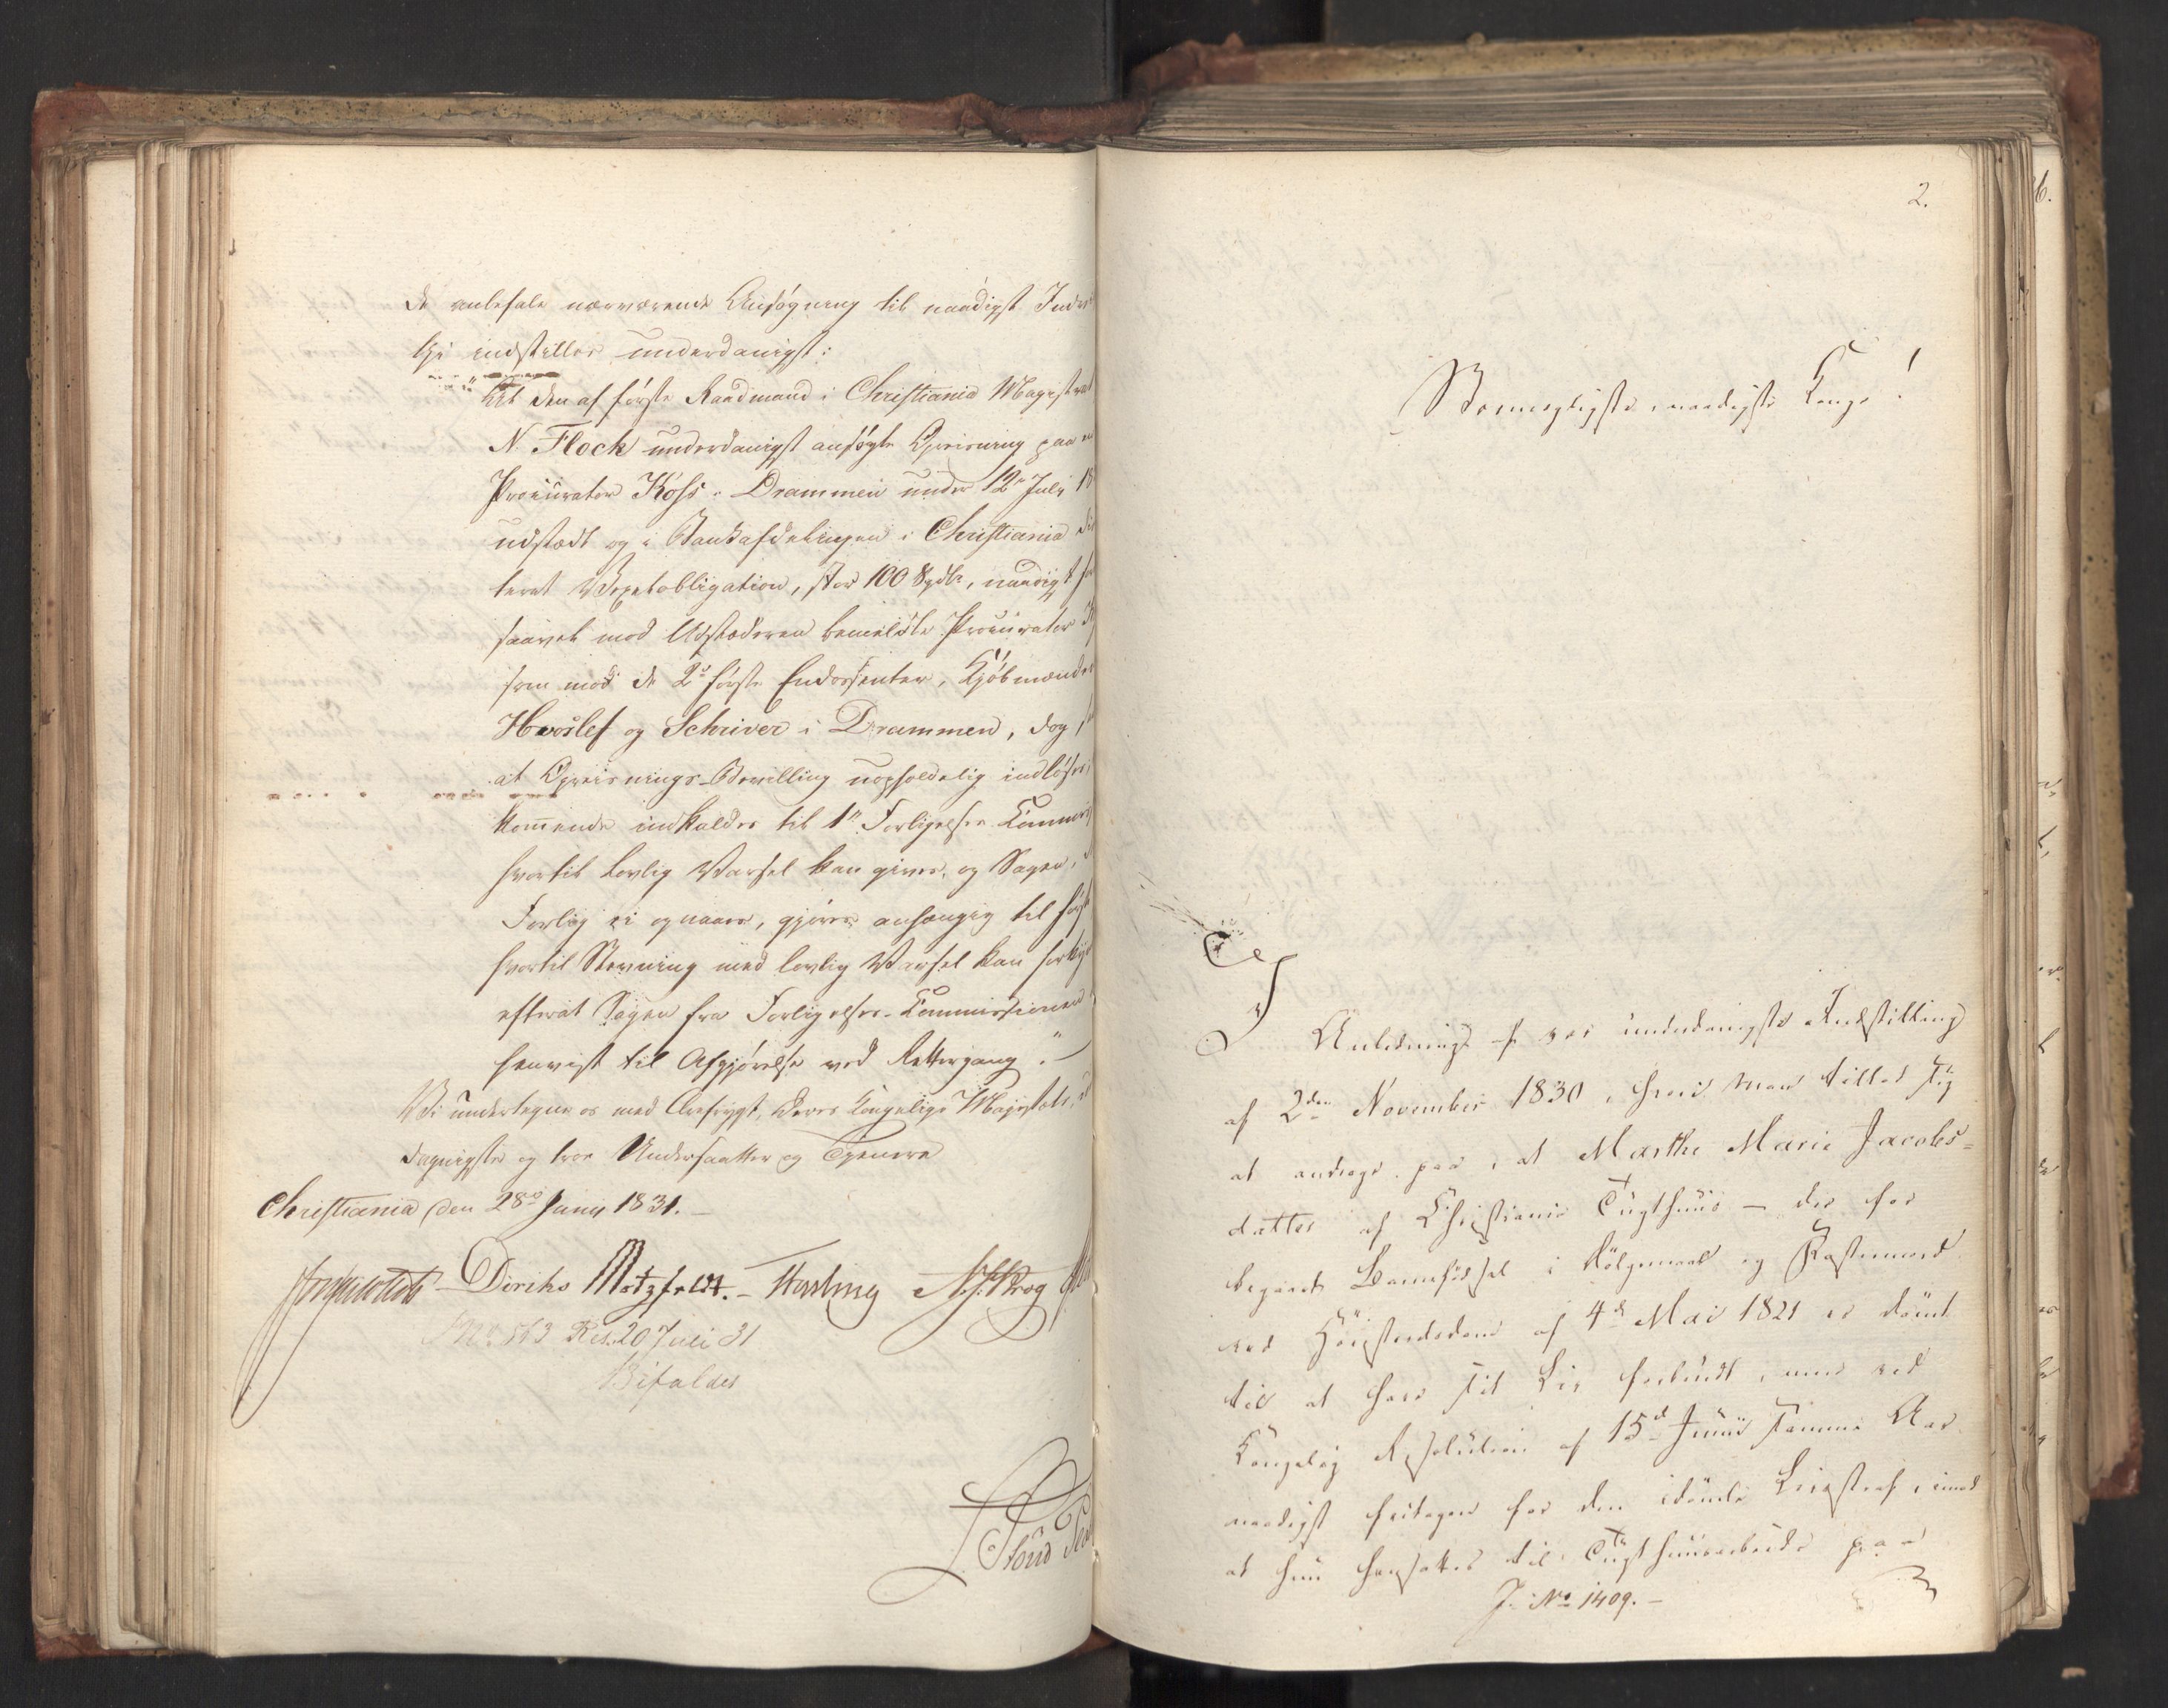 de anbefale nærværende Ansøgning til naadigst Ind
thi indstilles underdanigst:
"At den af første Raadmand i Christiania Magistrat
N. Flock underdanigst ansøgte Opreisning paa en
Procurator Koss i Drammen under 12te July 18
udstædt og i Bankafdelingen i Christiania
teret Vexelobligation, stor 100 Spdlr, naadigst
saavel mod Udstæderen bemeldte Procurator K
som mod de 2de første Endossenter, Kjöbmænde
Hvoslef og Schriver i Drammen, dog
at Opreisnings-Bevilling uopholdelig indløses,
kommende indkaldes til 1te Forligelses-Commis
hvortil lovlig Varsel kan gives, og Sagen,
Forlig ei opnaaes, gjøres anhængig til første
hvortil Stevning med lovlig Varsel kan
efterat Sagen fra Forligelses-Commissionen
henvist til Afgjørelse ved Rettergang."
Vi undertegne os med Ærefrygt, Deres Kongelige Majestæts,
danigste og troe Undersaatter og Tjenere
Christiania den 28de Juny 1831.
Diriks Motzfeldt. Krog
No 563 Res. 20 Juli 31
Bifaldes
2.
Stormægtigste, naadigste Konge!
I
Anledning af vor underdanigste Indstilling
af 2den November 1830, hvori man tillod sig
at andrage paa, at Marthe Marie Jacobs-
datter af Christiania Tugthuus – der for
begaaet Barnefødsel i Dölgsmaal og Fostermord
ved Höiesteretsdom af 4de Mai 1821 er dömt
til at have sit Liv forbrudt, men ved
Kongelig Resolution af 15de Junii samme Aar
naadigst fritagen for den idömte Livsstraf, imod
at hun hensattes til Tugthuusarbeide paa
J. No 1409.